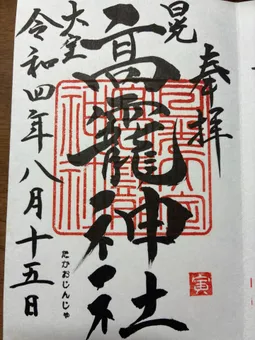 奉拝
日光
大室
高龗神社
たかおじんじゃ
令和四年八月十五日
寅